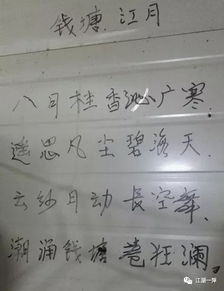 钱塘.江月
八月桂香沁广寒
遥思凡尘碧海天.
云纱月动长空舞.
潮涌钱塘卷狂澜。
江湖一萍